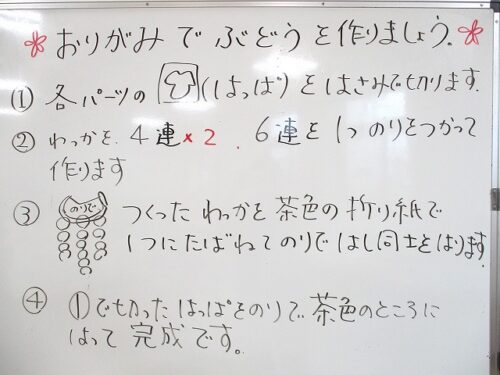 おりがみでぶどうを作りましょう.
(1) 各パーツの(はっぱ)をはさみで切ります.
② わっかを、4連×2、6連を1つのりをつかって
作ります
③ のりで つくったわっかを茶色の折り紙で
1つにたばねてのりではし同士をはります.
④ ①で切ったはっぱをのりで茶色のところに
はって完成です。